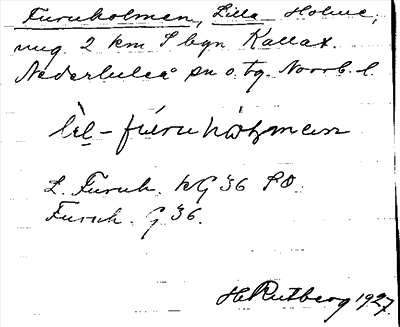 Furuholmen, Lilla Holme,
ung. 2 km S byn Kallax.
Nederluleå sn o. tg. Norrb. l.
lil-fúruhòlmen
L. Furuh. kG 36 SO
Furuh. G 36.
H Rutberg 1927.